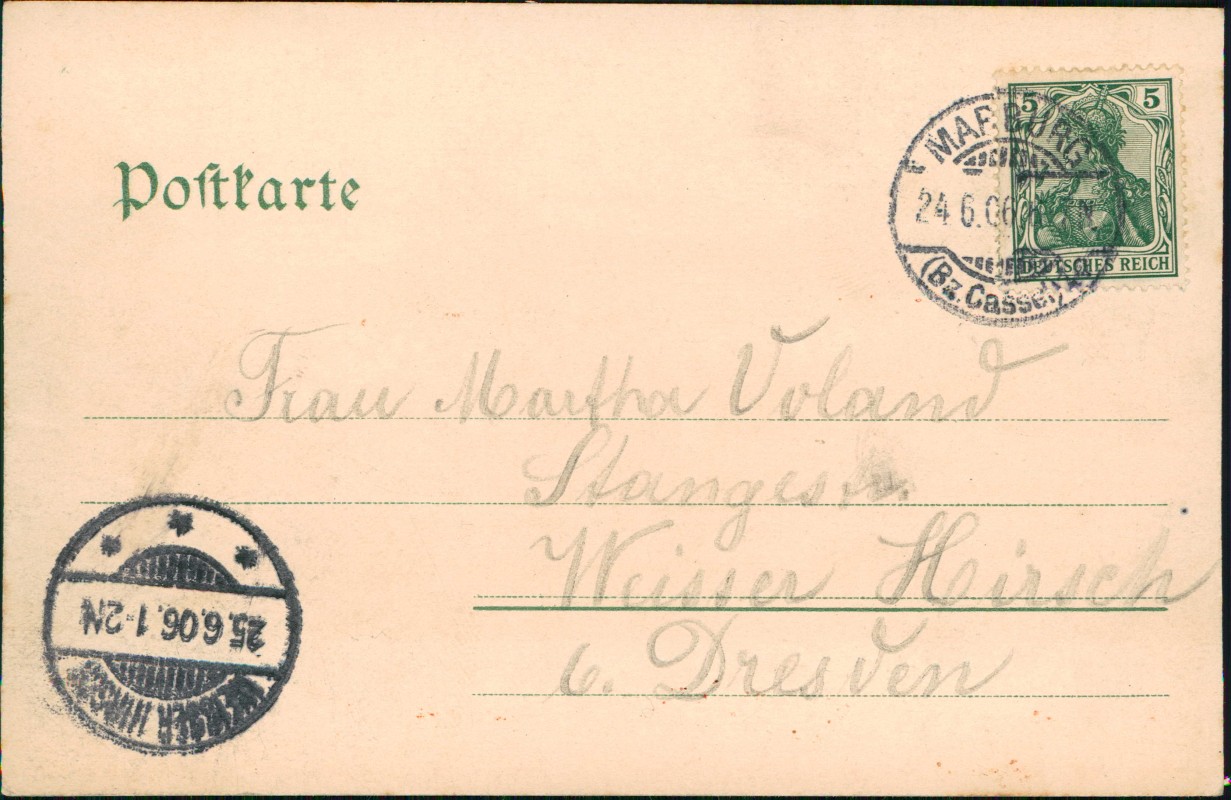 Postkarte
5 5
DEUTSCHES REICH
MARBURG
24.6.06
(Bz. Cassel)
Frau Martha Voland
Stangestr.
Weisser Hirsch
b. Dresden
25.6.06. 1-2N
WEISSER HIRSCH